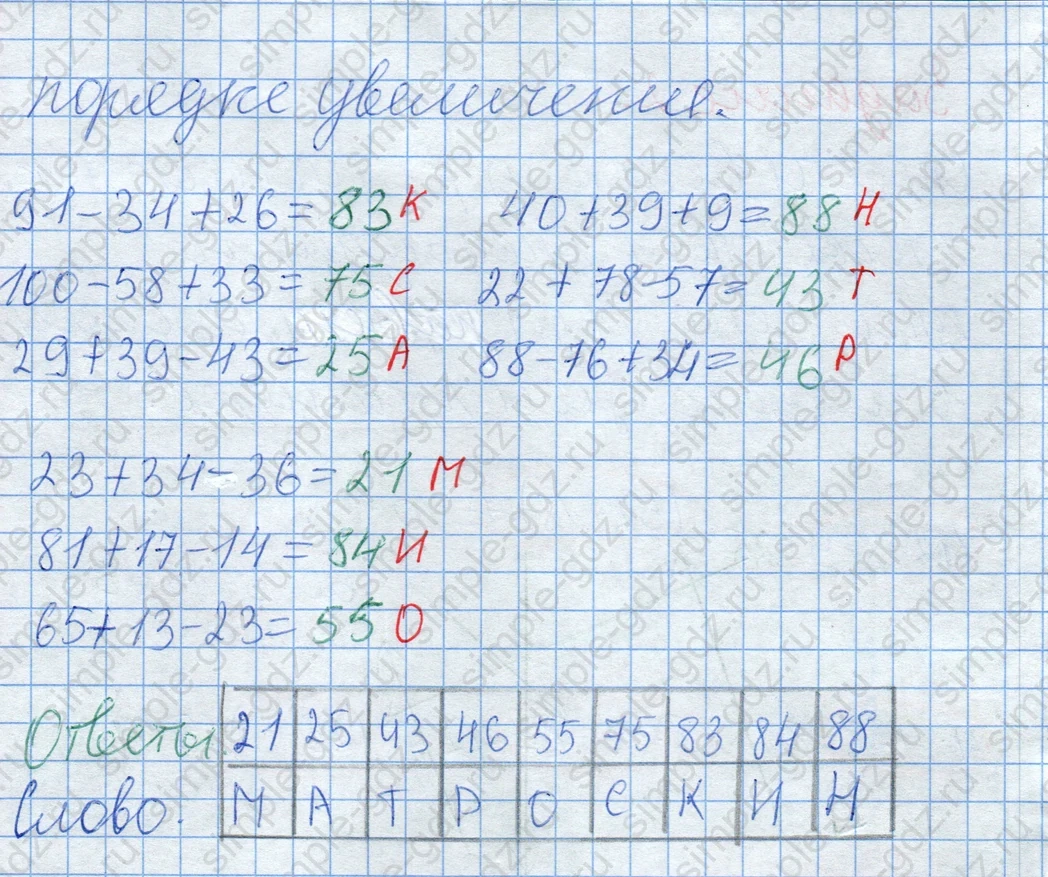 порядке увеличения.
91-34+26=83 К 40+39+9=88 Н
100-58+33=75 С 22+78-57=43 Т
29+39-43=25 А 88-76+34=46 Р
23+34-36=21 М
81+17-14=84 И
65+13-23=55 О
Ответы 21 25 43 46 55 75 83 84 88
Слово: М А Т Р О С К И Н
simple-gdz.ru